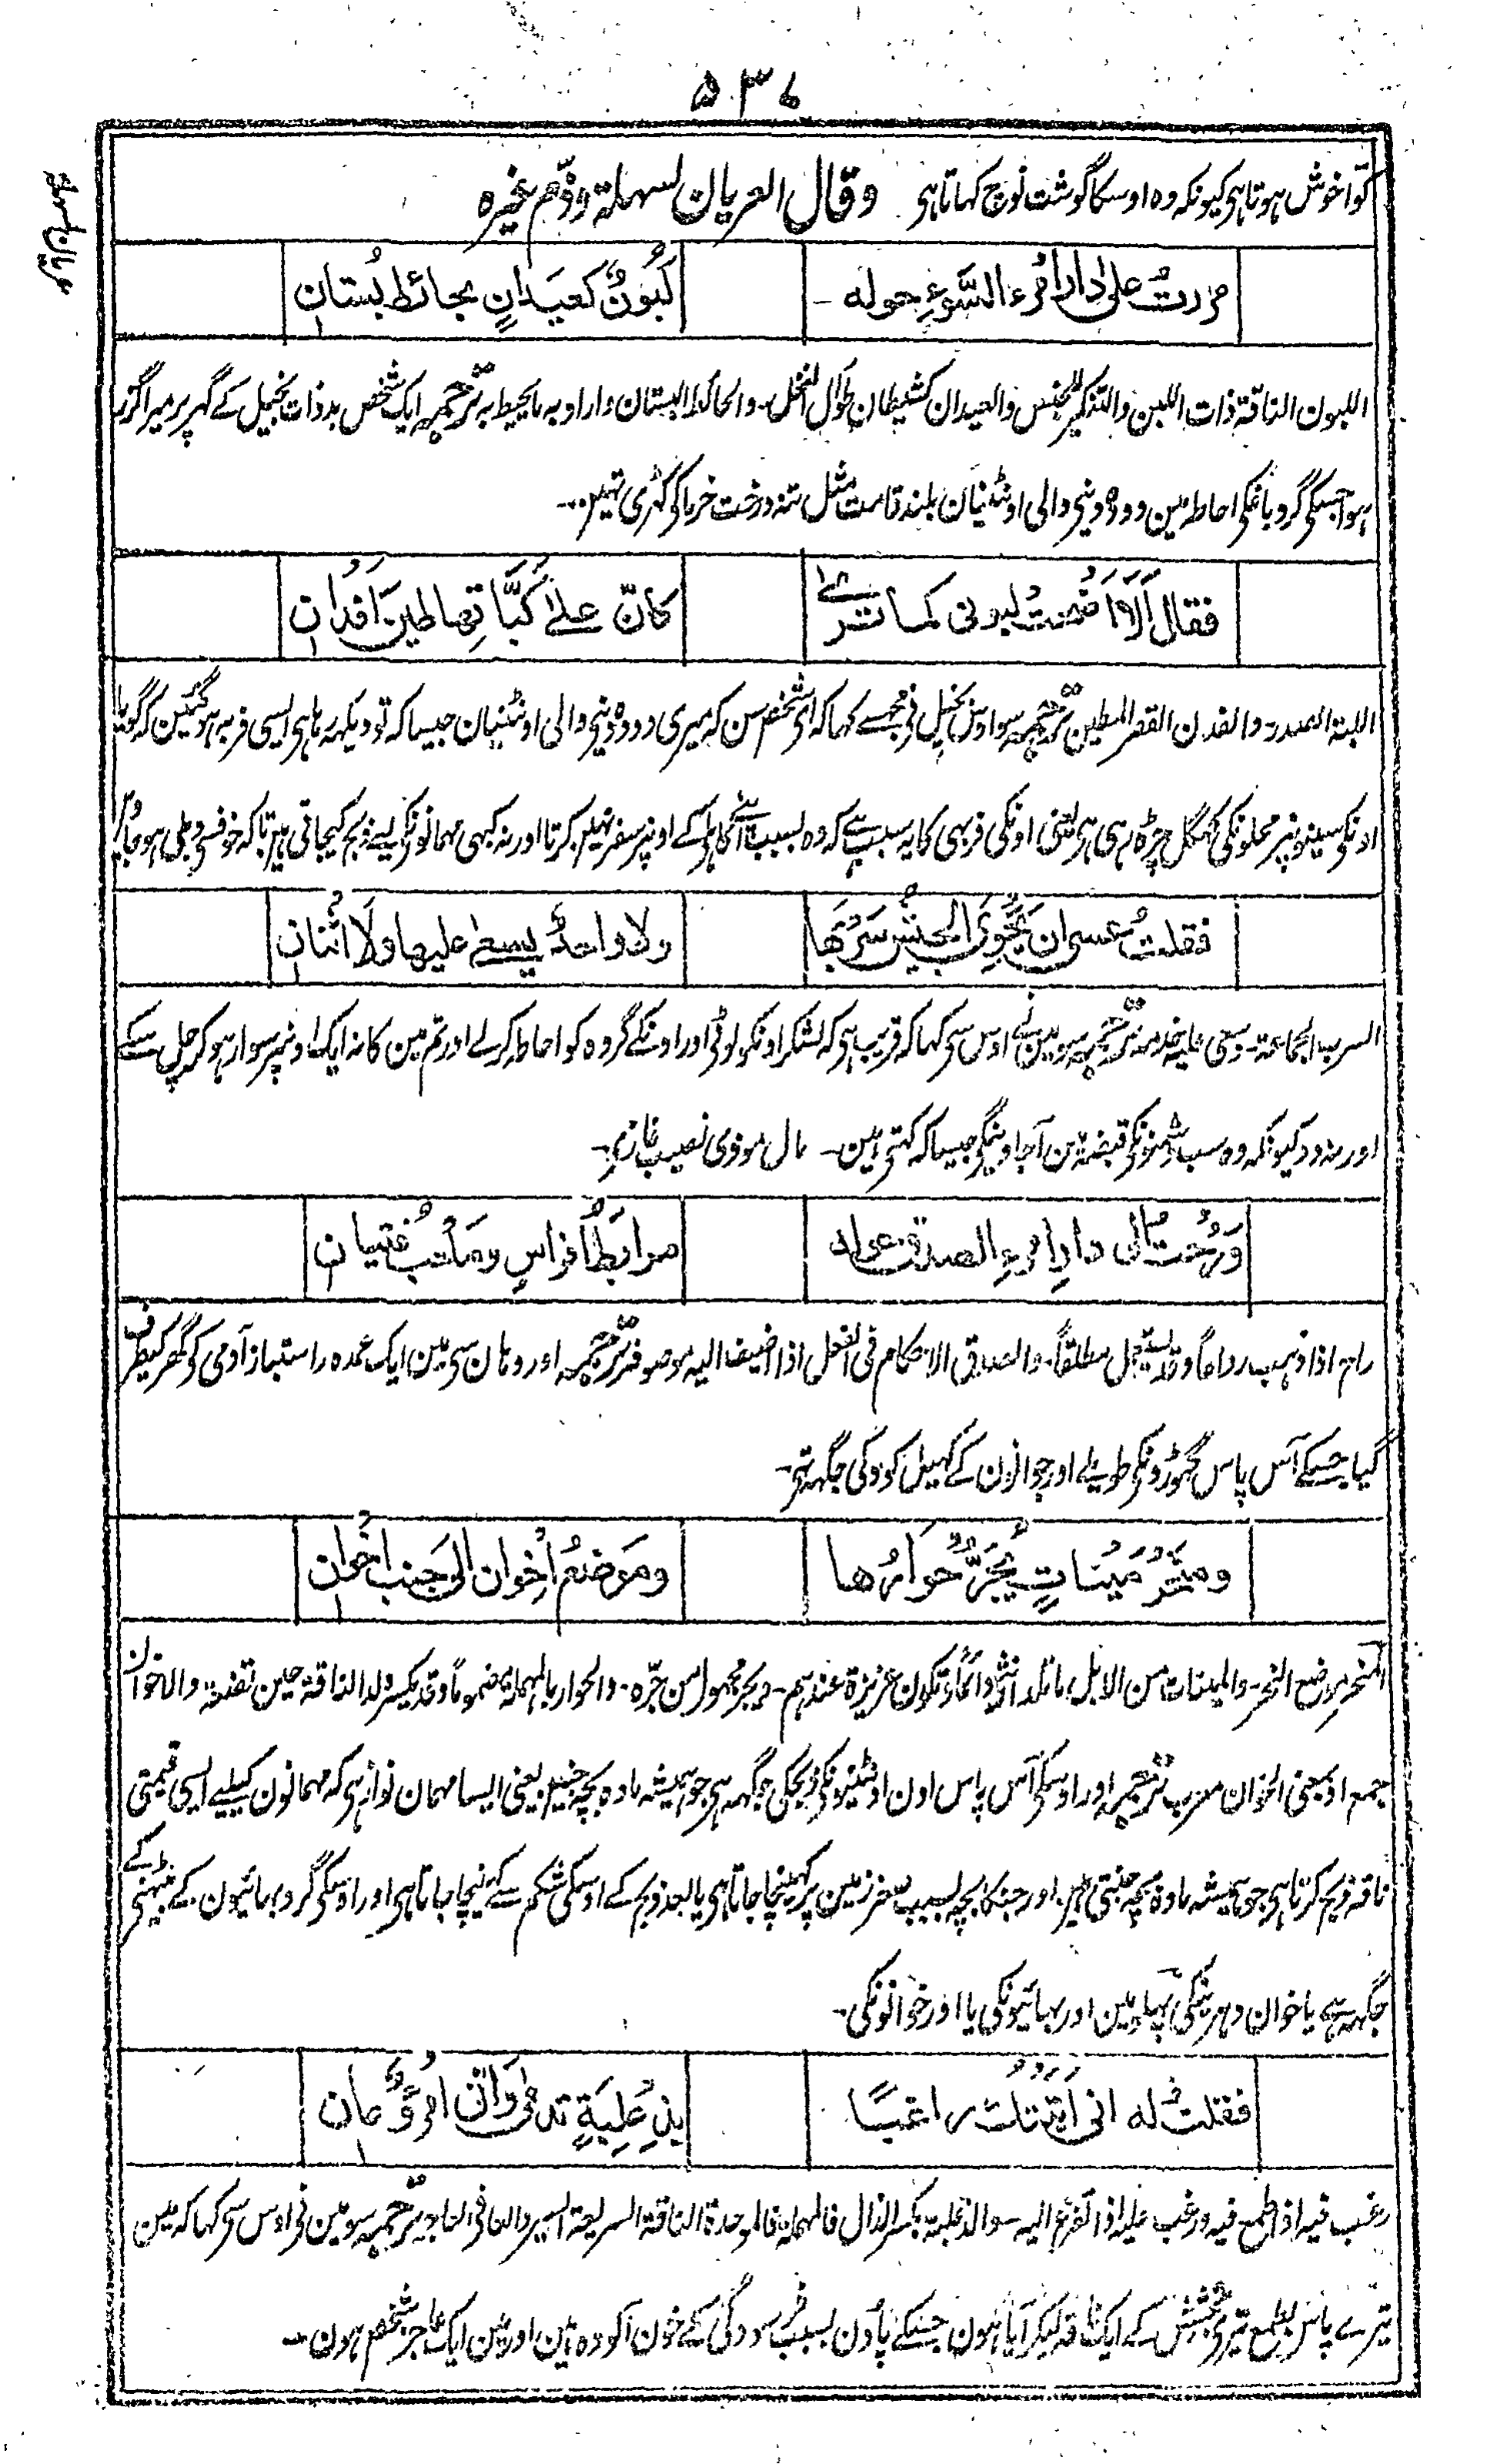 ۵۳۷
کوّا خوش ہوتا ہی کیونکہ وہ اوسکا گوشت نوچ کہاتا ہی وقال العریان لسہلۃ وذم غیرہ
عریان بسہلۃ
مررتُ علی دار امرءِ السَّوءِ حولہ - لَبُونٌ کعیدانٍ بحائط بُستانِ
اللبون الناقۃ ذات اللبن والتذکیر للجنس والعیدان کشیطان طوال النخل - والحائط البستان واراد بہ ما یحیط بہ ترجمہ ایک شخص بدذات بخیل کے گہر پر میرا گزر
ہوا جسکی گرد باغکی احاطہ مین دودہ دینی والی اونٹنیان بلند قامت مثل تنہ درخت خرما کی کہڑی تہین -
فقال اَلَا اَضحَت لبونی کما ترٰے کانّ علےٰ لَبَّاتِھا طینَ اَفدانِ
اللبۃ الصدر والفدن القصر المطین ترجمہ سو اوس بخیل نی مجھسے کہا کہ ای شخص سن کہ میری دودہ دینی والی اونٹنیان جیسا کہ تو دیکہہ رہا ہی ایسی فربہ ہوگئین کہ گویا
اونکی سینونپر محلونکی کہگل چڑہ رہی ہی یعنی اونکی فربہی کا یہ سبب ہے کہ وہ بسبب اسکے اونپر سفر نہین کرتا اور نہ کبہی مہمانونکی لیے ذبح کیجاتی ہین تاکہ خوف سی دبلی ہوجائین
فقلتُ عسی ان یَحوِیَ الجیشُ سَربَھا ولا واحدٌ یسعٰے علیھا ولَا اثنانِ
السرب الجماعۃ - وسعی علیہ خدمہ ترجمہ سو مین نے اوس سی کہا کہ قریب ہی کہ لشکر اونکو لوٹی اور اونکے گروہ کو احاطہ کرلے اور تم مین کا نہ ایک اونپر سوار ہوکر چل سکے
اور نہ دو کیونکہ وہ سب دشمنونکی قبضہ مین آجاوینگی جیسا کہ کہتی ہین - مال موذی نصیب غازی -
وَرُحتُ الی دارِ امرءِ الصدقِ حولہ مرابطُ افراسٍ وملعبُ فتیانِ
راح اذا ذہب رواحاً وقد یستعمل مطلقاً - والصدق الاحکام فی الفعل اذا اضیف الیہ موصوفہ ترجمہ اور وہان سی مین ایک عمدہ راستباز آدمی کو گہر کیطرف
گیا جسکے آس پاس گہوڑونکی طویلے اور جوانون کے کہیل کود کی جگہہ تہی -
ومَنحَرُ مِینَاثٍ یُجَرُّ حُوارُھا وموضعُ اِخوان الی جنب اخوانِ
المنحر موضع النحر - والمیناث من الابل ما تلد انثی دائماً وتکون عزیزۃ عندہم - ویجر مجہول من جرّہ - والحوار بالمہملۃ مضموماً وقد یکسر ولد الناقۃ حین تضعہ والاخوان
جمع اخ بمعنی الخوان معرب ترجمہ اور اوسکی آس پاس اون اونٹنیونکی ذبحکی جگہہ ہی جو ہمیشہ مادہ بچہ جنین یعنی ایسا مہمان نواز ہی کہ مہمانون کیلیے ایسی قیمتی
ناقہ ذبح کرتا ہی جو ہمیشہ مادہ بچہ جنتی ہین اور جنکا بچہ بسبب صغر زمین پر کہینچا جاتا ہی یا بعد ذبح کے اوسکی شکم سے کہینچا جاتا ہی اور اوسکی گرد بہائیون کے بیٹہنی کے
جگہہ ہے یا خوان دہرینکی پہلو مین اور بہائیونکی یا اور خوانونکی -
فقلتُ لہ انی اَتیتک راغباً بذِعلِبَۃٍ تدمٰی وانی امرؤٌ عانِ
رغب فیہ اذا طمع فیہ ورغب علیہ اذا تضرع الیہ - والذعلبۃ بکسر الذال فالمہملۃ فالموحدۃ الناقۃ السریعۃ السیر والعانی العاجز ترجمہ سو مین نی اوس سی کہا کہ مین
تیرے پاس بطمع تیری بخشش کے ایک ناقہ لیکر آیا ہون جسکے پاؤن بسبب سودگی کے خون آلودہ ہین اور مین ایک عاجز شخص ہون -